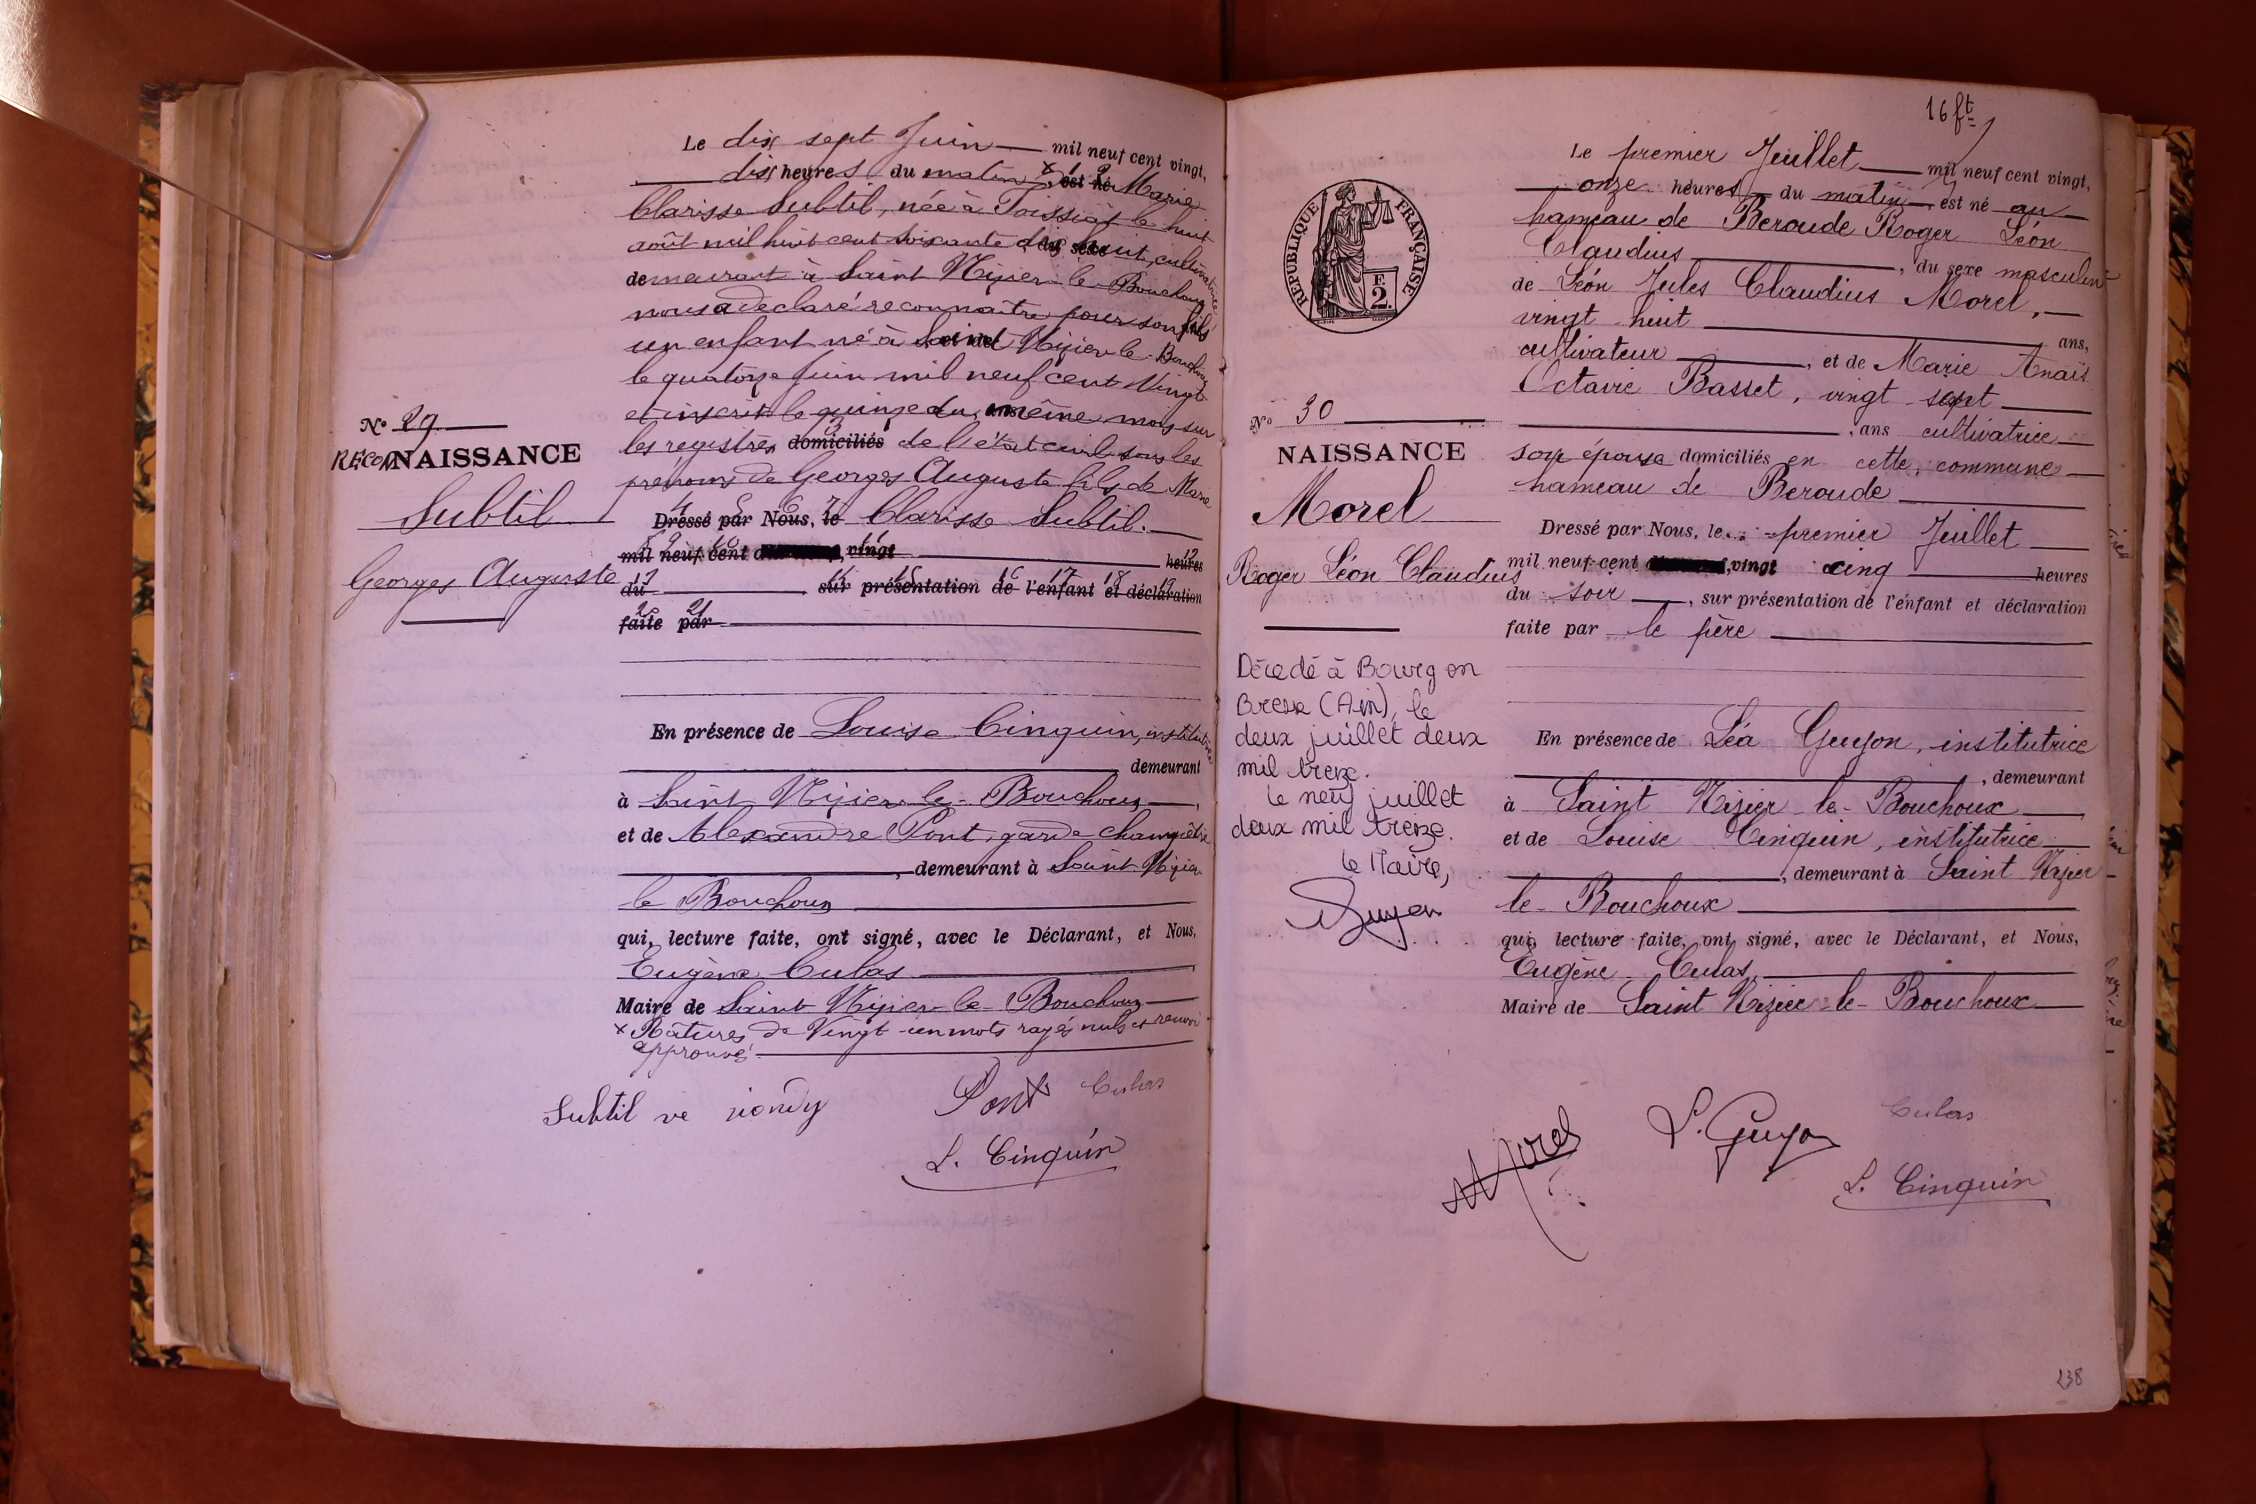 Le dix sept Juin mil neuf cent vingt,
dix heures du matin × est né Marie
Clarisse Subtil, née à Poissiat le huit
août mil huit cent soixante dix huit, cultivatrice
demeurant à Saint Nizier le Bouchoux
nous a déclaré reconnaître pour son fils
un enfant né à Saint Nizier le Bouchoux
le quatorze Juin mil neuf cent Vingt
et inscrit le quinze du même mois sur
les registres domiciliés de l'état civil sous les
prénoms de Georges Auguste fils de Marie
Dressé par Nous, le Clarisse Subtil.
mil neuf cent vingt heures
du sur présentation de l'enfant et déclaration
faite par
N° 29
RECONNAISSANCE
Subtil
Georges Auguste
En présence de Louise Cinquin, institutrice
demeurant
à Saint Nizier le Bouchoux,
et de Alexandre Pont, garde champêtre
, demeurant à Saint Nizier
le Bouchoux
qui, lecture faite, ont signé, avec le Déclarant, et Nous,
Eugène Culas
Maire de Saint Nizier le Bouchoux
× Ratures de Vingt un mots rayés nuls et renvoi
approuvés
Subtil ve
Pont Culas
L. Cinquin
16 ft
Le premier Juillet mil neuf cent vingt,
onze heures du matin est né au
hameau de Beroude Roger Léon
Claudius, du sexe masculin
de Léon Jules Claudius Morel,
vingt huit ans,
cultivateur, et de Marie Anaïs
Octavie Basset, vingt sept
, ans cultivatrice
son épouse domiciliés en cette commune
hameau de Beroude
Dressé par Nous, le premier Juillet
mil neuf cent vingt cinq heures
du soir, sur présentation de l'enfant et déclaration
faite par le père
RÉPUBLIQUE FRANÇAISE
E.
2.
N° 30
NAISSANCE
Morel
Roger Léon Claudius
Décédé à Bourg en
Bresse (Ain), le
deux juillet deux
mil treize.
le neuf juillet
deux mil treize.
le Maire,
En présence de Léa Guyon, institutrice
, demeurant
à Saint Nizier le Bouchoux,
et de Louise Cinquin, institutrice
, demeurant à Saint Nizier
le Bouchoux
qui, lecture faite, ont signé, avec le Déclarant, et Nous,
Eugène Culas,
Maire de Saint Nizier le Bouchoux
Morel
L. Guyon
Culas
L. Cinquin
238